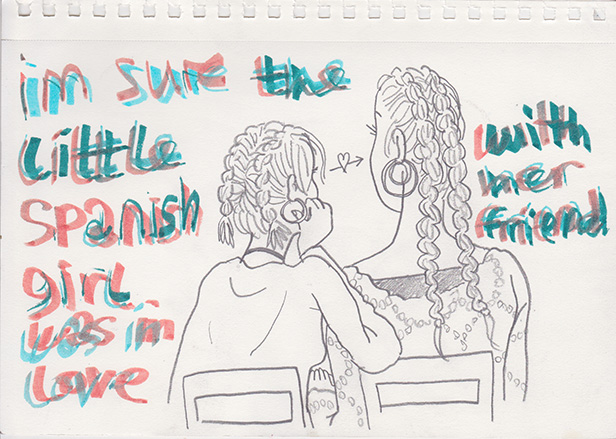 im sure the
little
spanish
girl
was in
love
with
her
friend